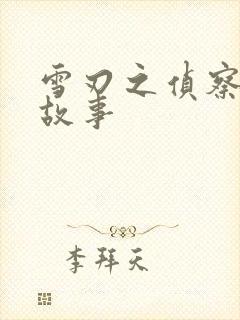 雪刃之偵察
故事
李拜天